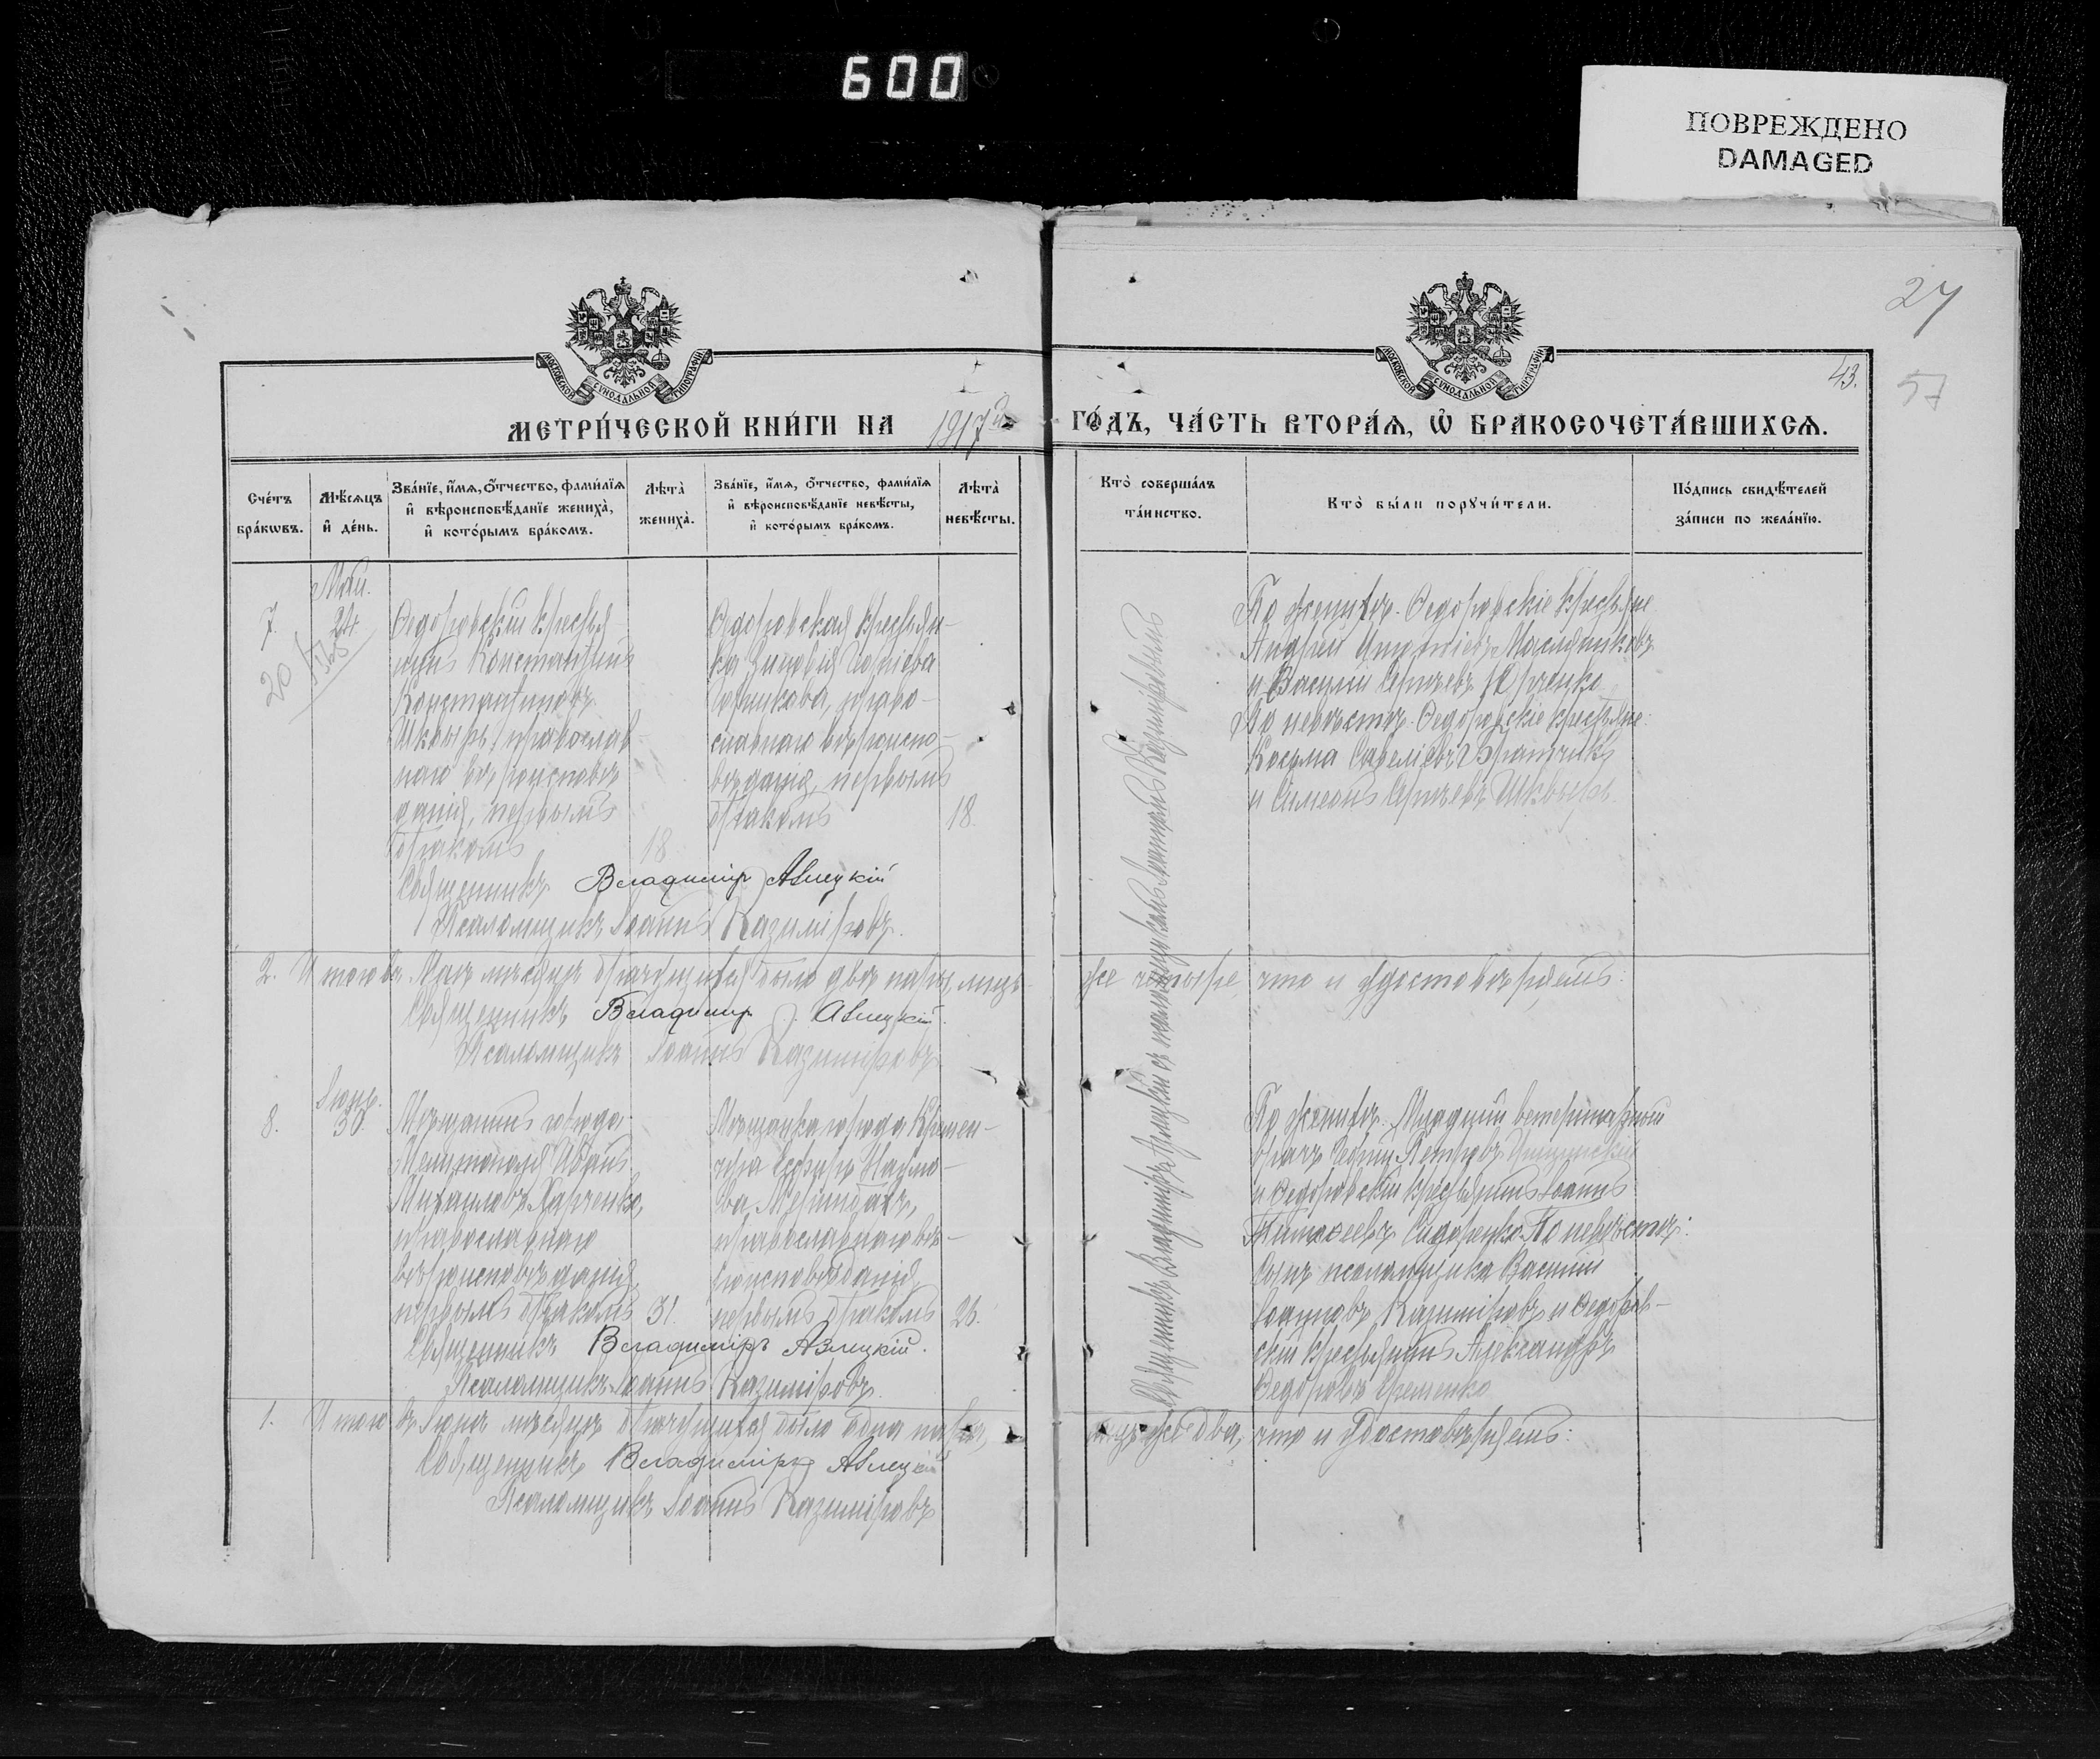 600
ПОВРЕЖДЕНО
DAMAGED
27
43.
57
МОСКОВСКОЙ СУНОДАЛЬНОЙ ТИПОГРАФІИ
МОСКОВСКОЙ СУНОДАЛЬНОЙ ТИПОГРАФІИ
МЕТРИ́ЧЕСКОЙ КНИ́ГИ НА 1917й ГО́ДЪ, ЧА́СТЬ ВТОРА́Ѧ, Ѡ҆ БРАКОСОЧЕТА́ВШИХСѦ.
Сче́тъ
бра́кѡвъ.
Мѣ́сѧцъ
и҆ де́нь.
Зва́нїе, и҆́мѧ, о҆́тчество, фами́лїѧ
и҆ вѣроисповѣ́данїе жениха̀,
и҆ кото́рымъ бра́комъ.
Лѣта̀
жениха̀.
Зва́нїе, и҆́мѧ, о҆́тчество, фами́лїѧ
и҆ вѣроисповѣ́данїе невѣ́сты,
и҆ кото́рымъ бра́комъ.
Лѣта̀
невѣ́сты.
Кто̀ соверша́лъ
та́инство.
Кто̀ бы́ли порꙋчи́тели.
По́дпись свидѣ́телей
за́писи по жела́нїю.
7.
Май.
24.
Ѳедоровскій крестья-
нинъ Константинъ
Константиновъ
Шквырь, православ-
наго вѣроисповѣ-
данія, первымъ
бракомъ
18
Ѳедоровская крестьян-
ка
право-
славнаго вѣроиспо-
вѣданія, первымъ
бракомъ
18.
По женихѣ: Ѳедоровскіе крестьяне
Андрей Масляниковъ
и Василій Сергѣевъ Юрченко
По невѣстѣ: Ѳедоровскіе крестьяне:
Косьма Савеліевъ
и Симеонъ Сергѣевъ Шквырь.
Священникъ Владиміръ Авлецкій
Псаломщикъ Іоаннъ Казиміровъ.
2. Итого въ Маѣ мѣсяцѣ брачущихся было двѣ пары, лицъ
же четыре, что и удостовѣряемъ:
Священникъ Владиміръ Авлецкій.
Псаломщикъ Іоаннъ Казиміровъ
8.
Іюнь.
30.
Мѣщанинъ города
Мелитополя Иванъ
Михаиловъ Харченко,
православнаго
вѣроисповѣданія,
первымъ бракомъ
31.
Мѣщанка города Кремен-
чуга Наумо-
ва
православнаго вѣ-
роисповѣданія
первымъ бракомъ
26.
По женихѣ: Младшій ветеринарный
врачъ Петровъ
и Ѳедоровскій крестьянинъ Іоаннъ
Тимоѳеевъ Сидоренко. По невѣстѣ:
Сынъ псаломщика Василій
Іоанновъ Казиміровъ и Ѳедоров-
скій крестьянинъ Александръ
Ѳедоровъ Еременко
Священникъ Владиміръ Авлецкій.
Псаломщикъ Іоаннъ Казиміровъ.
1. Итого въ Іюнѣ мѣсяцѣ брачущихся была одна пара,
лицъ же два, что и удостовѣряемъ:
Священникъ Владиміръ Авлецкій
Псаломщикъ Іоаннъ Казиміровъ
Священникъ Владиміръ Авлецкій съ псаломщикомъ Іоанномъ Казиміровымъ